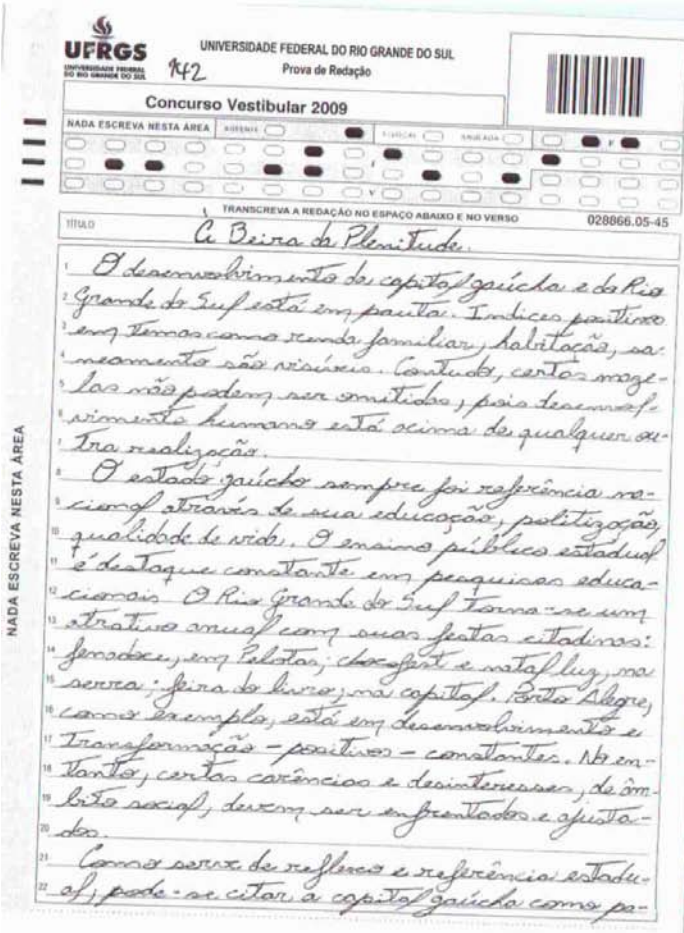 UFRGS
UNIVERSIDADE FEDERAL
DO RIO GRANDE DO SUL
942
UNIVERSIDADE FEDERAL DO RIO GRANDE DO SUL
Prova de Redação
Concurso Vestibular 2009
NADA ESCREVA NESTA ÁREA
TRANSCREVA A REDAÇÃO NO ESPAÇO ABAIXO E NO VERSO
028866.05-45
TÍTULO
À Beira da Plenitude.
1 O desenvolvimento da capital gaúcha e do Rio
2 Grande do Sul está em pauta. Indices positivos
3 em temas como renda familiar, habitação, sa-
4 neamento são visíveis. Contudo, certas maze-
5 las não podem ser omitidas, pois desenvol-
6 vimento humano está acima de qualquer ou-
7 tra realização.
8 O estado gaúcho sempre foi referência na-
9 cional através de sua educação, politização,
10 qualidade de vida. O ensino público estadual
11 é destaque constante em pesquisas educa-
12 cionais. O Rio Grande do Sul torna-se um
13 atrativo anual com suas festas citadinas:
14 fenadoce, em Pelotas; chocofest e natal luz, na
15 serra; feira do livro, na capital. Porto Alegre,
16 como exemplo, está em desenvolvimento e
17 transformação - positivos - constantes. No en-
18 tanto, certas carências e desinteresses, de âm-
19 bito social, devem ser enfrentados e ajusta-
20 dos.
21 Como serve de reflexo e referência estadu-
22 al, pode-se citar a capital gaúcha como pa-
NADA ESCREVA NESTA ÁREA